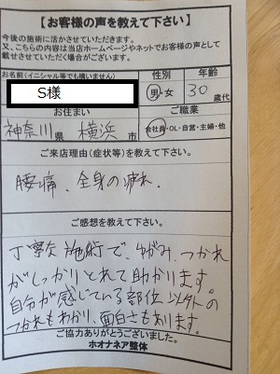 【お客様の声を教えて下さい】
今後の施術に活かさせていただきます。
又、こちらの内容は当店ホームページやネットでお客様の声として
載せさせていただく場合がございます。
お名前(イニシャル等でも構いません) 性別 年齢
S様 男・女 30歳代
お住まい ご職業
神奈川県 横浜市 会社員・OL・自営・主婦・他
ご来店理由(症状等)を教えて下さい。
腰痛、全身の疲れ。
ご感想を教えて下さい。
丁寧な施術で、ゆがみ、つかれ
がしっかりとれて助かります。
自分が感じている部位以外の
つかれもわかり、面白さもあります。
ご協力ありがとうございました。
ホオナネア整体